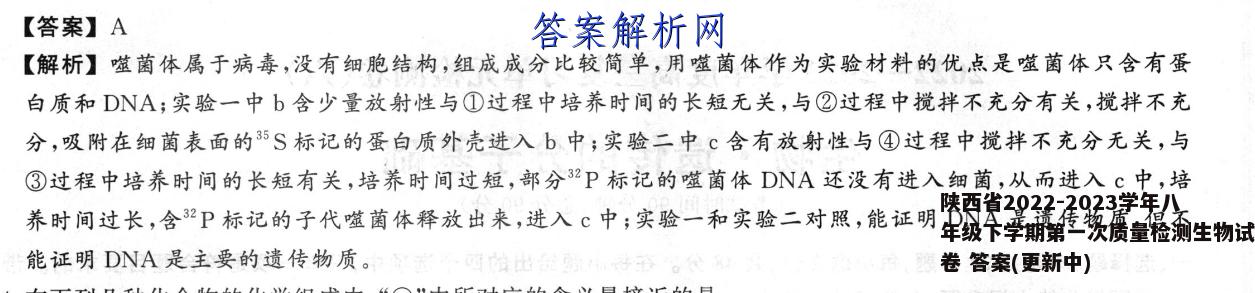 【答案】A
答案解析网
【解析】噬菌体属于病毒,没有细胞结构,组成成分比较简单,用噬菌体作为实验材料的优点是噬菌体只含有蛋
白质和DNA;实验一中b含少量放射性与①过程中培养时间的长短无关,与②过程中搅拌不充分有关,搅拌不充
分,吸附在细菌表面的³⁵S标记的蛋白质外壳进入b中;实验二中c含有放射性与④过程中搅拌不充分无关,与
③过程中培养时间的长短有关,培养时间过短,部分³²P标记的噬菌体DNA还没有进入细菌,从而进入c中,培
养时间过长,含³²P标记的子代噬菌体释放出来,进入c中;实验一和实验二对照,能证明DNA是遗传物质,但不
能证明DNA是主要的遗传物质。
陕西省2022-2023学年八
年级下学期第一次质量检测生物试
卷 答案(更新中)